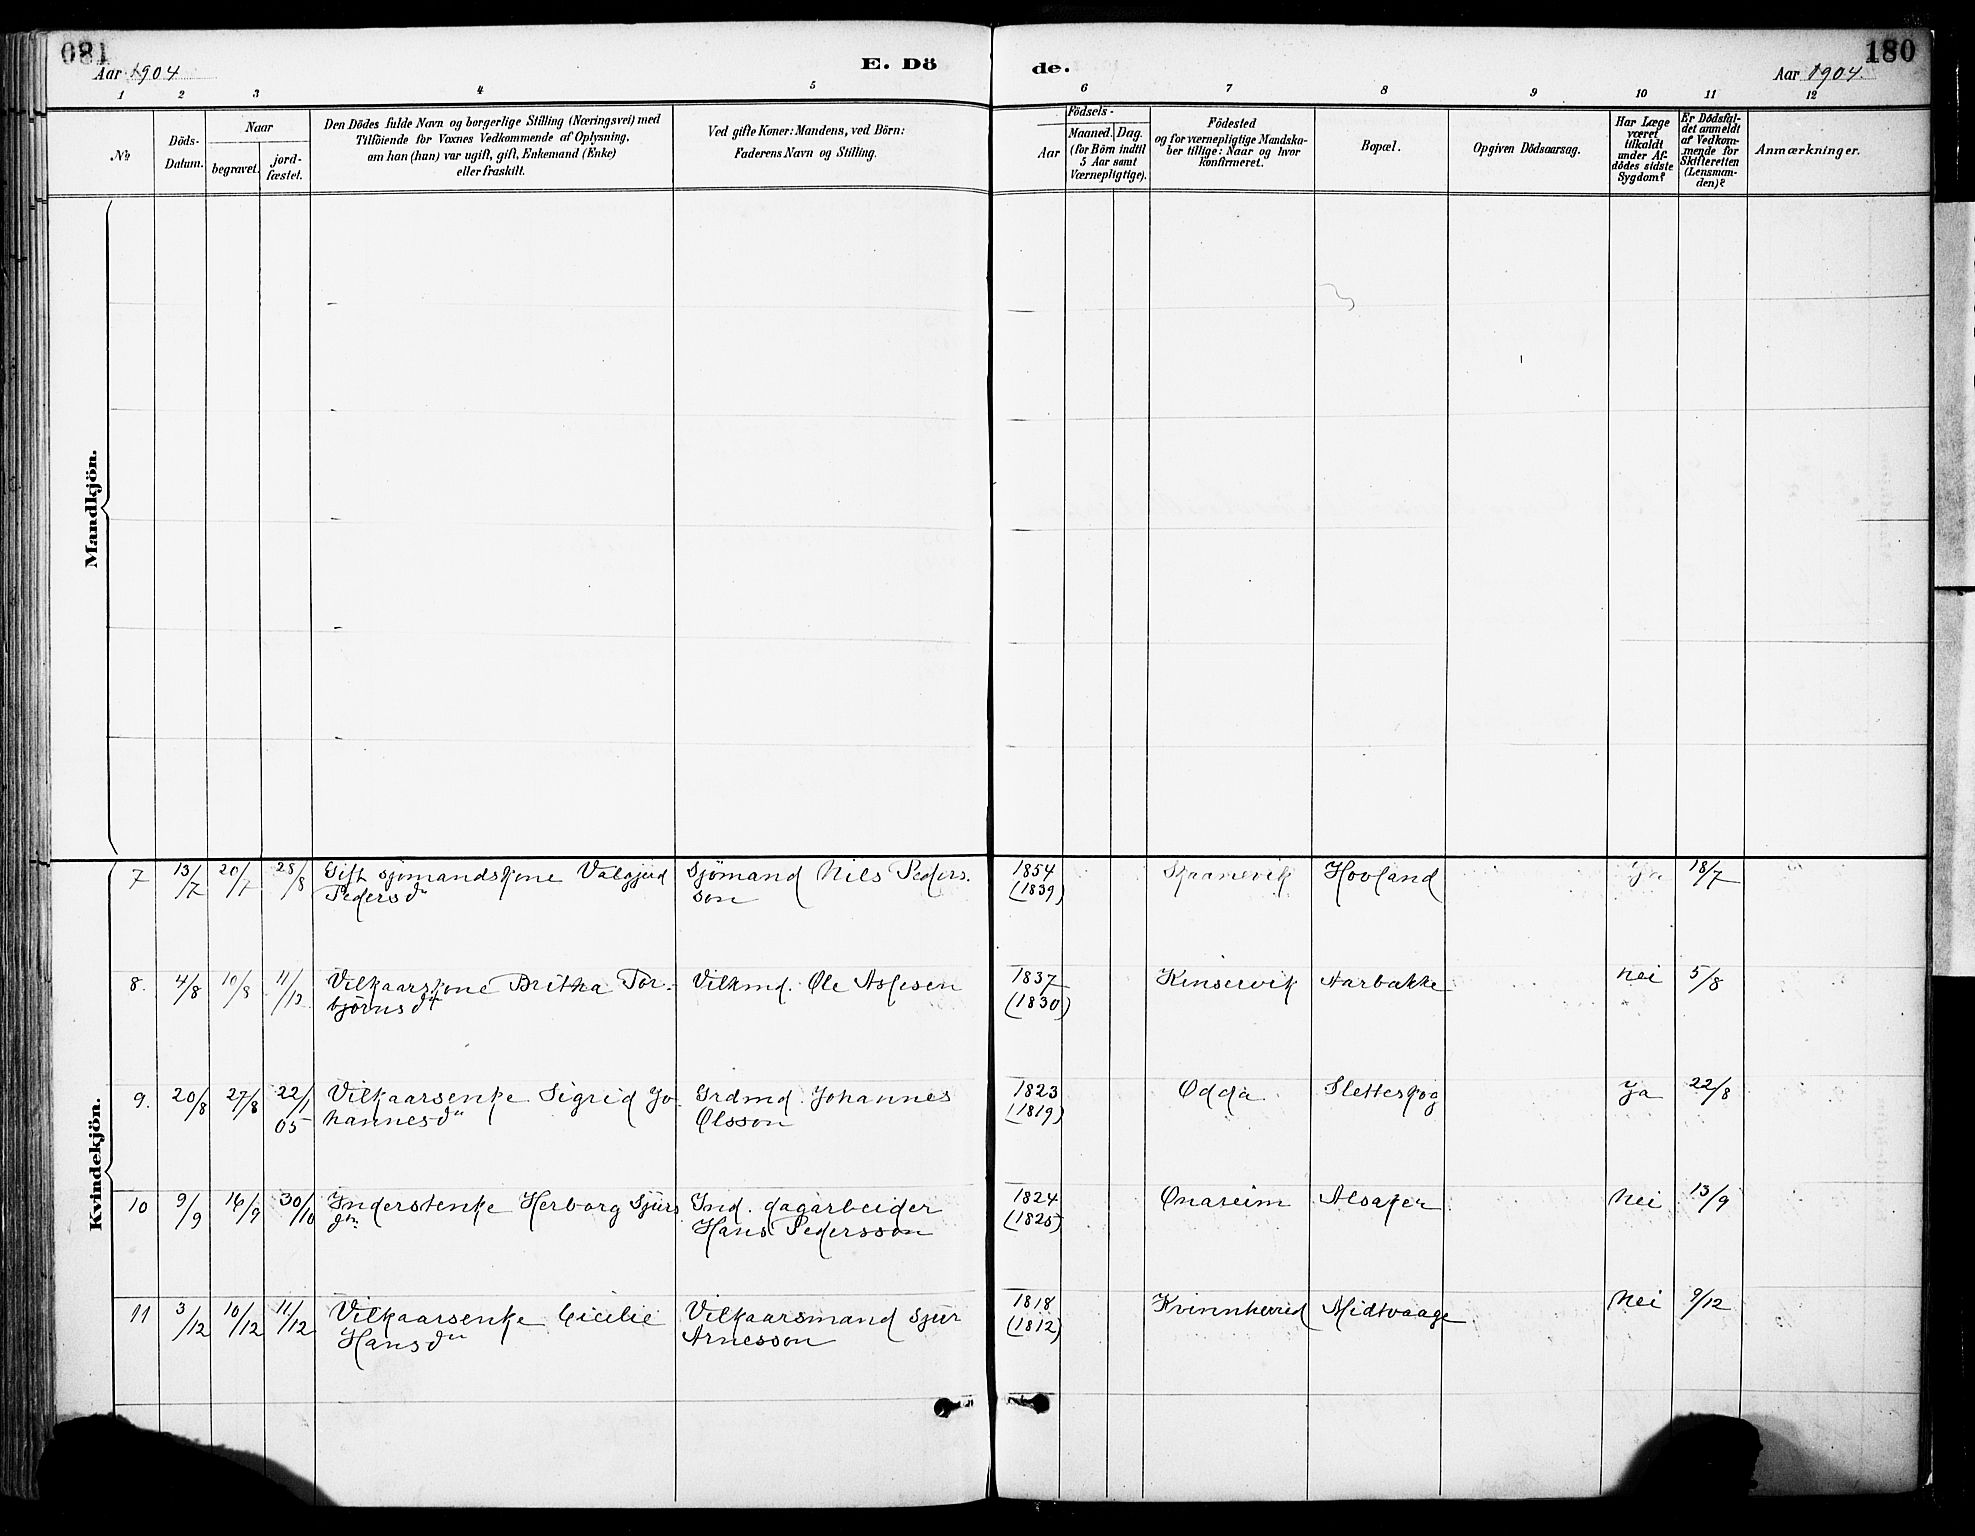 081
180
Aar 1904
E. Dö
de.
Aar 1904.
1 2 3 4 5 6 7 8 9 10 11 12
No.
Döds-
Datum.
Naar
begravet.
jord-
fæstet.
Den Dödes fulde Navn og borgerlige Stilling (Næringsvei) med
Tilföiende for Voxnes Vedkommende af Oplysning,
om han (hun) var ugift, gift, Enkemand (Enke)
eller fraskilt.
Ved gifte Koner: Mandens, ved Börn:
Faderens Navn og Stilling.
Födsels-
Aar
Maaned. Dag.
(for Börn indtil
5 Aar samt
Værnepligtige).
Födested
og for værnepligtige Mandska-
ber tillige: Naar og hvor
konfirmeret.
Bopæl.
Opgiven Dödsaarsag.
Har Læge
været
tilkaldt
under Af-
dödes sidste
Sygdom?
Er Dödsfal-
det anmeldt
af Vedkom-
mende for
Skifteretten
(Lensman-
den)?
Anmærkninger.
Mandkjön.
Kvindekjön.
7 13/7 20/7 28/8 Gift sjömandskone Valgjerd Sjömand Nils Peders. 1854 Skaanevik Hovland Ja 18/7
Pedersdtr son (1839)
8. 4/8 10/8 11/12 Vilkaarskone Britha Tor- Vilkmd. Ole Aslesen 1837 Kinservik Aarbakke Nei 5/8
björnsdtr (1830)
9. 20/8 27/8 22/1 Vilkaarsenke Sigrid Jo- Grdmd. Johannes 1823 Odda Sletteskog Ja 22/8
05 hannesdtr Olsson (1819)
10 9/9 16/9 30/10 Inderstenke Herborg Sjurs Ind. dagarbeider 1824 Onareim Alsaker Nei 13/9
dtr. Hans Pedersson (1825)
11 3/12 10/12 11/12 Vilkaarsenke Cicilie Vilkaarsmand Sjur 1818 Kvinnherred Midtvaage Nei 9/12
Hansdtr Arnesson (1812)